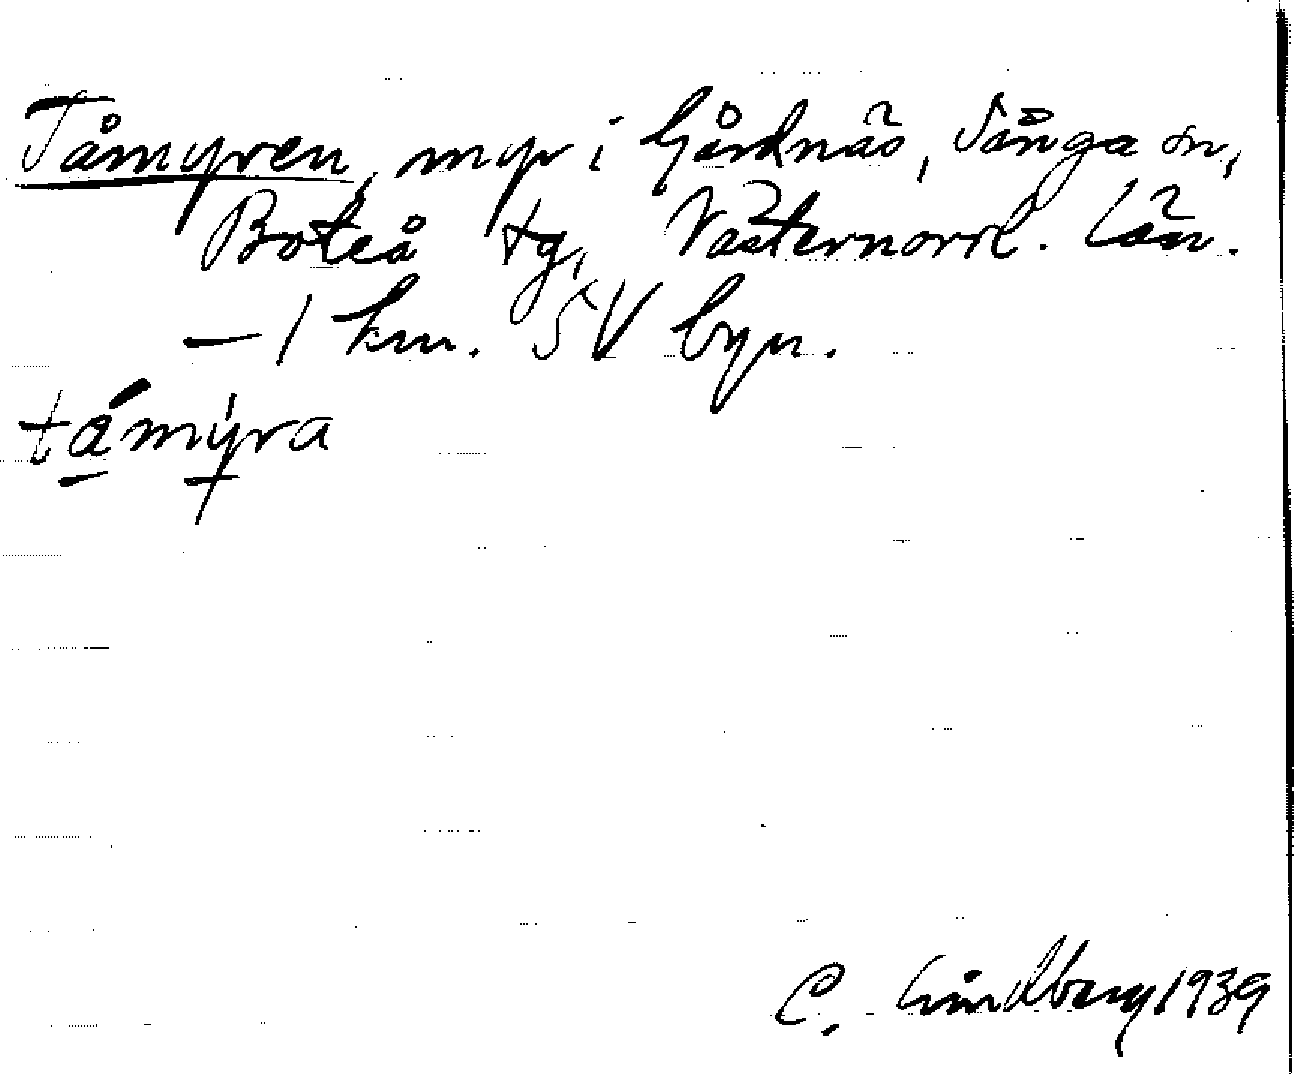 Tåmyren, myr i Gårdnäs, Sånga sn,
Boteå tg, Västernorrl. län.
— 1 km. SV byn.
támýra
C. Lindberg 1939